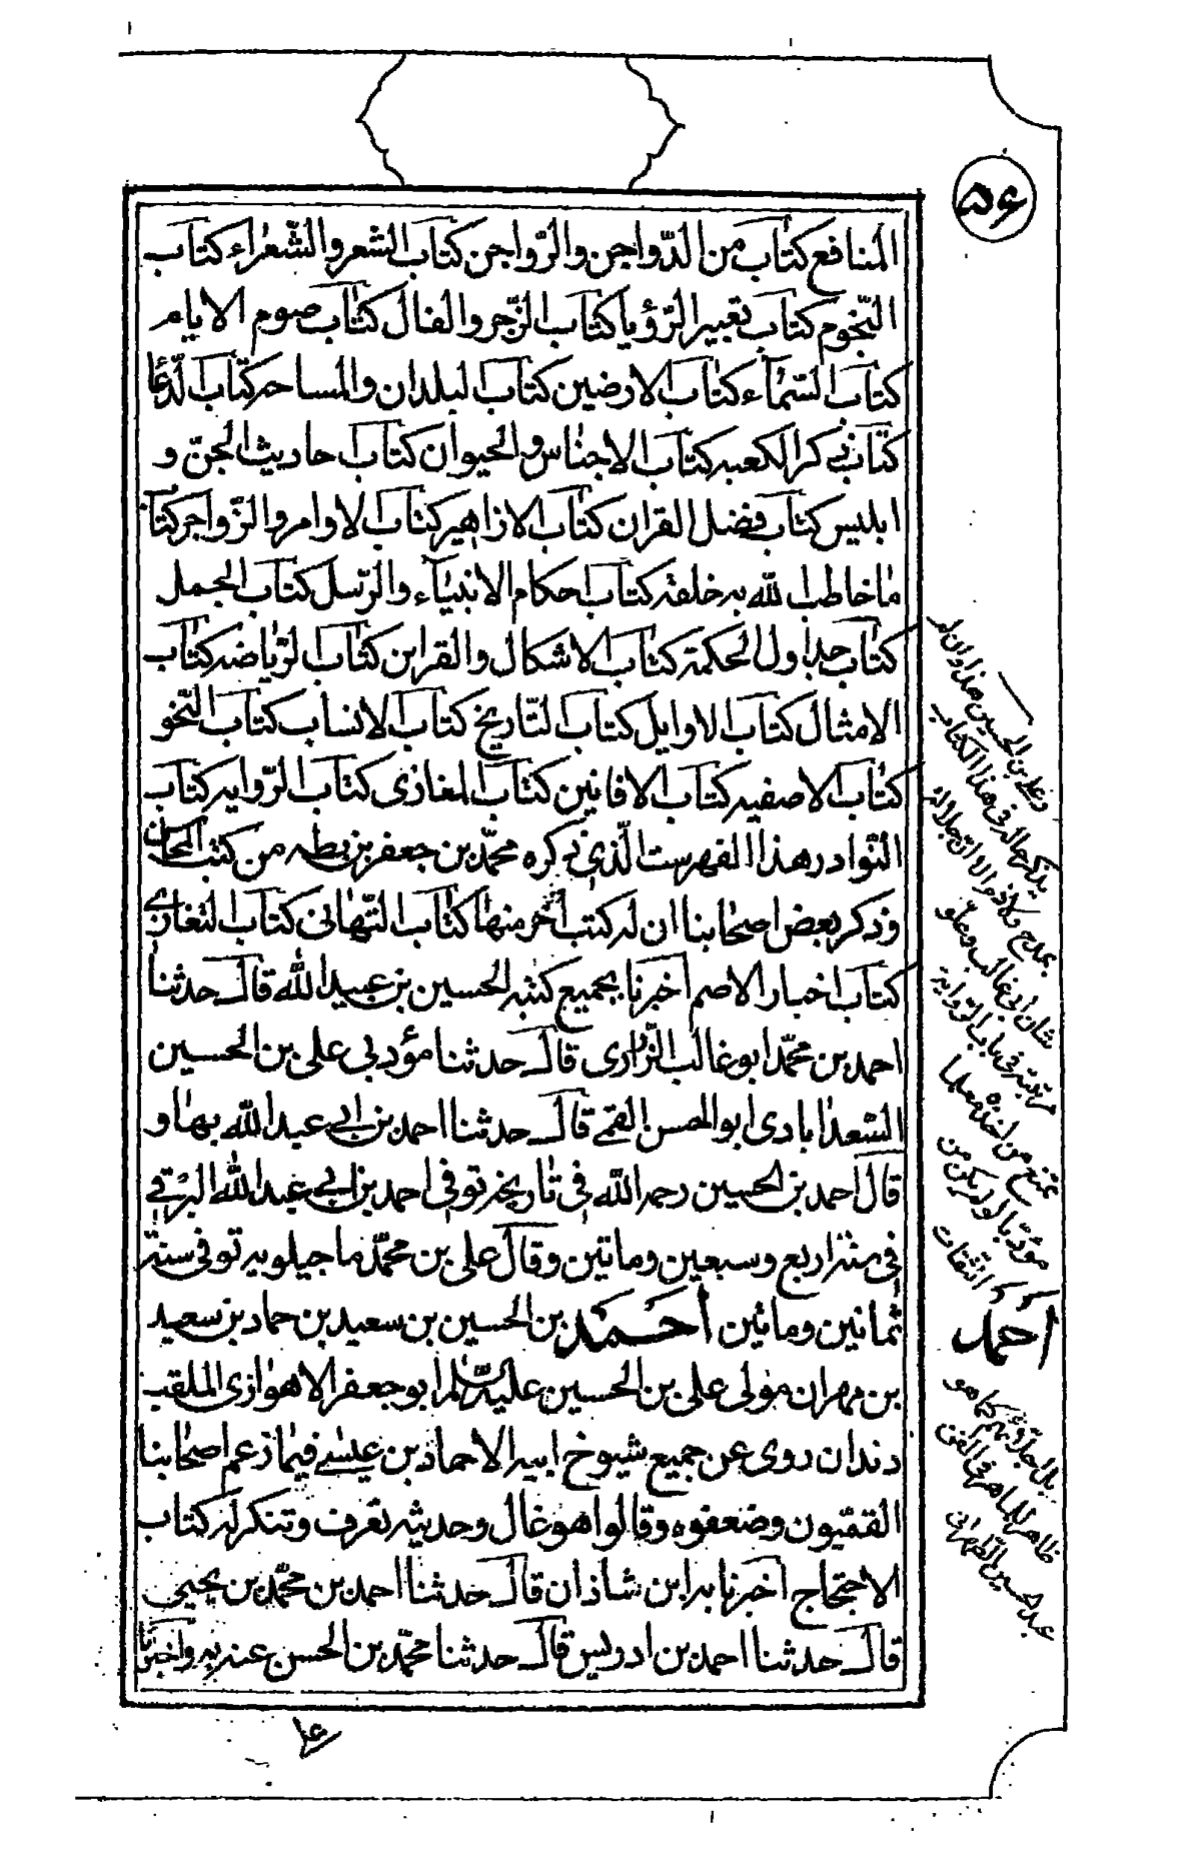 ۵۶
المنافع كتاب من الدّواجن والرّواجن كتاب الشعر والشّعراء كتاب
النّجوم كتاب تعبير الرّؤيا كتاب الزّجر والفال كتاب صوم الايام
كتاب السّمآء كتاب الارضين كتاب البلدان والمساحه كتاب الدّعا
كتاب ذكر الكعبه كتاب الاجناس والحيوان كتاب احاديث الجنّ و
ابليس كتاب فضل القران كتاب الازاهير كتاب الاوامر والزّواجر كتاب
ما خاطب الله به خلقه كتاب احكام الانبيآء والرّسل كتاب الجمل
كتاب جداول الحكمة كتاب الاشكال والقراين كتاب الرّياضه كتاب
الامثال كتاب الاوايل كتاب التّاريخ كتاب الانساب كتاب النّحو
كتاب الاصفيه كتاب الافانين كتاب المغازى كتاب الرّوايه كتاب
النّوادر هذا الفهرست الّذى ذكره محمّد بن جعفر بن بطه من كتب المحاسن
وذكر بعض اصحابنا ان له كتب اخر منها كتاب التّهانى كتاب التغازي
كتاب اخبار الاصم اخبرنا بجميع كتبه الحسين بن عبيد الله قال حدثنا
احمد بن محمّد ابو غالب الزّرارى قال حدثنا مؤدبي على بن الحسين
السّعدابادى ابو الحسن القمى قال حدثنا احمد بن ابي عبد الله بها و
قال احمد بن الحسين رحمه الله في تاريخه توفي احمد بن ابي عبد الله البرقي
في سنة اربع وسبعين وماتين وقال على بن محمّد ماجيلويه توفى سنة
ثمانين وماتين أحمد بن الحسين بن سعيد بن حماد بن سعيد
بن مهران مولى على بن الحسين عليه السّلام ابو جعفر الاهوازى الملقب
دندان روى عن جميع شيوخ ابيه الا حماد بن عيسى فيما زعم اصحابنا
القمّيون وضعفوه وقالوا هو غال وحديثه تعرف وتنكر له كتاب
الاحتجاج اخبرنا به ابن شاذان قال حدثنا احمد بن محمّد بن يحيى
قال حدثنا احمد بن ادريس قال حدثنا محمّد بن الحسن عنه به واخبرنا
وعلى بن الحسين هذا وان لم
يذكر حاله في هذا الكتاب
بمدح ولا ذم الا ان جلالة
شان ابى غالب وعلو
مرتبته في باب الرّواية
تمنع من اخذه معلما
مؤدّبا لو لم يكن من
الثقات
أحمد
ظاهر للماهر في الفن
عبد الحسين الطهرانى